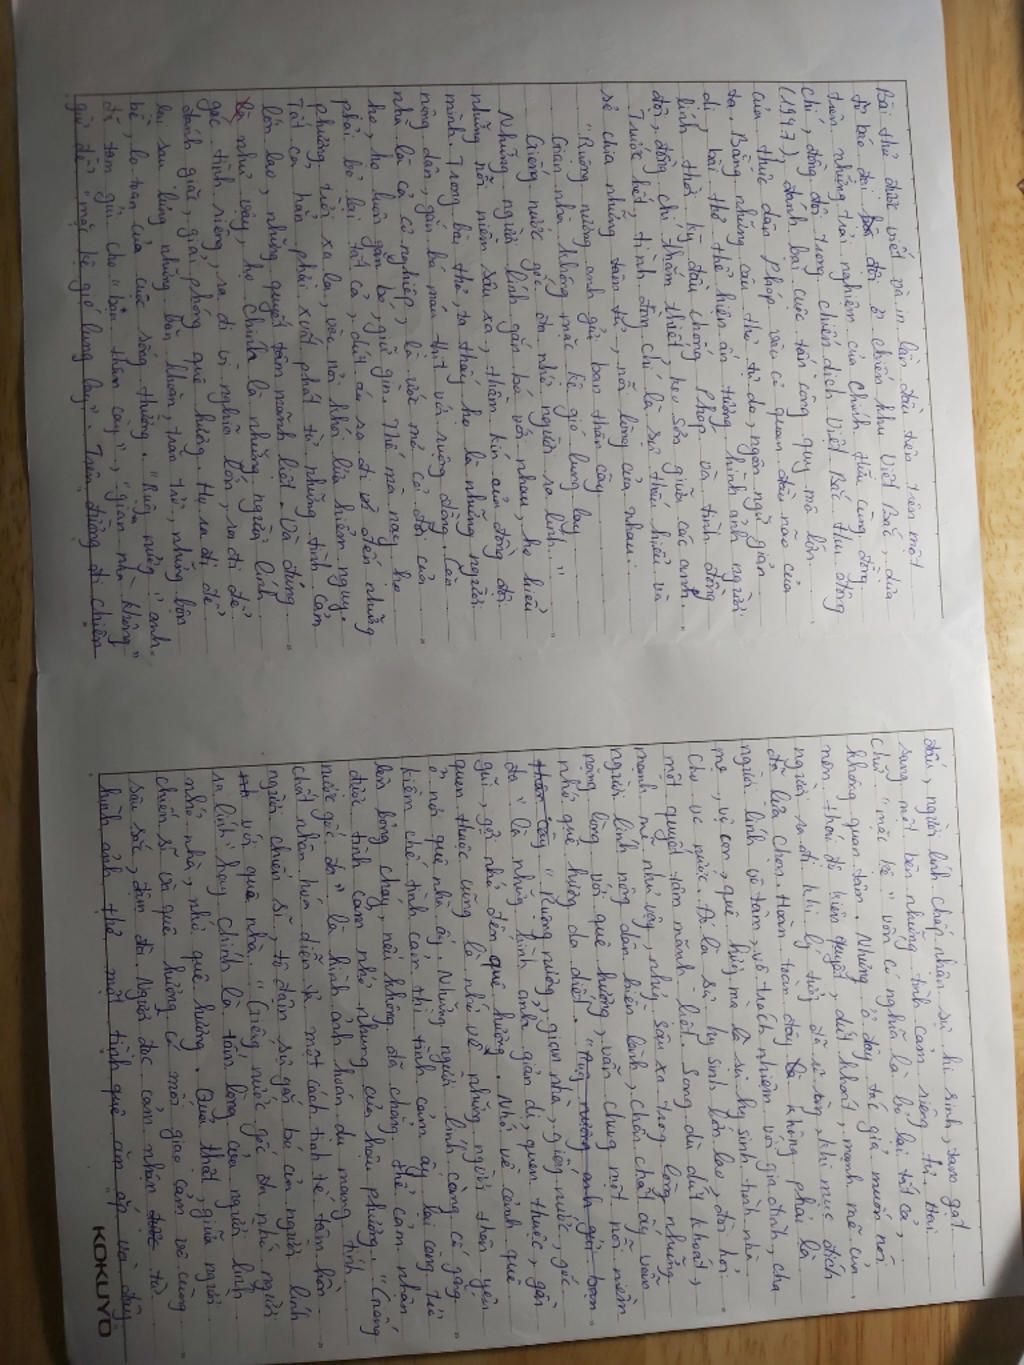 Bài thơ được viết và in lần đầu tiên trên một
tờ báo đại đội ở chiến khu Việt Bắc, dựa
trên những trải nghiệm của Chính Hữu cùng đồng
chí, đồng đội trong chiến dịch Việt Bắc thu đông
(1947), đánh bại cuộc tấn công quy mô lớn
của thực dân Pháp vào cơ quan đầu não của
ta. Bằng những câu thơ tự do, ngôn ngữ giản
dị, bài thơ thể hiện ấn tượng hình ảnh người
lính thời kỳ đầu chống Pháp và tình đồng
đội, đồng chí thắm thiết, keo sơn giữa các anh.
Trước hết, tình đồng chí là sự thấu hiểu và
sẻ chia những tâm tư, nỗi lòng của nhau:
"Ruộng nương anh gửi bạn thân cày
Gian nhà không mặc kệ gió lung lay
Giếng nước gốc đa nhớ người ra lính."
Những người lính gắn bó với nhau, họ hiểu
những nỗi niềm sâu xa, thầm kín của đồng đội
mình. Trong bài thơ, ta thấy họ là những người
nông dân, gắn bó máu thịt với ruộng đồng. Căn
nhà là cả cơ nghiệp, là ước mơ cả đời của
họ, họ luôn gắn bó, giữ gìn. Thế mà nay họ
phải bỏ lại tất cả, dứt áo ra đi đến những
phương trời xa lạ, vào nơi khói lửa hiểm nguy.
Tất cả hẳn phải xuất phát từ những tình cảm
lớn lao, những quyết tâm mãnh liệt. Và đúng
là như vậy, họ chính là những người lính
gác tình riêng, ra đi vì nghĩa lớn, ra đi để
đánh giặc, giải phóng quê hương. Họ ra đi để
lại sau lưng những băn khoăn, trăn trở, những bộn
bề, lo toan của cuộc sống thường. "Ruộng nương" anh
đã tạm gửi cho "bạn thân cày", "gian nhà không"
giờ để "mặc kệ gió lung lay". Trên đường đi chiến
đấu, người lính chấp nhận sự hi sinh, tạm gạt
sang một bên những tình cảm riêng tư. Hai
chữ "mặc kệ" vốn có nghĩa là bỏ lại tất cả,
không quan tâm. Nhưng ở đây tác giả muốn nói
nên thái độ kiên quyết, dứt khoát, mạnh mẽ của
người ra đi khi lý tưởng đã rõ ràng, khi mục đích
đã lựa chọn. Hoàn toàn đây là không phải là
người lính vô tâm, vô trách nhiệm với gia đình, cha
mẹ, vợ con, quê hương mà là sự hy sinh tình nhà
cho việc nước. Đó là sự hy sinh lớn lao, đòi hỏi
một quyết tâm mãnh liệt. Song dù dứt khoát,
mạnh mẽ như vậy, nhưng sâu xa trong lòng những
người lính nông dân hiền lành, chân chất ấy vẫn
nặng lòng với quê hương, vẫn chung một nỗi niềm
nhớ quê hương da diết. "Ruộng nương anh gửi bạn
thân cày "Ruộng nương, gian nhà, giếng nước, gốc
đa" là những hình ảnh giản dị, quen thuộc, gần
gũi, gợi nhớ đến quê hương. Nhớ về cảnh quê
quen thuộc cũng là nhớ về những người thân yêu
ở nơi quê nhà ấy. Những người lính càng cố gắng
kiềm chế tình cảm thì tình cảm ấy lại càng trở
lên bỏng cháy, nếu không đã chẳng thể cảm nhận
được tình cảm nhớ nhung của hậu phương. "Giếng
nước gốc đa" là hình ảnh hoán dụ mang tính
chất nhân hóa diễn tả một cách tinh tế tâm hồn
người chiến sĩ, tô đậm sự gắn bó của người lính
với quê nhà. "Giếng nước gốc đa nhớ người
ra lính" hay chính là tấm lòng của người lính
nhớ nhà, nhớ quê hương. Quả thật, giữa người
chiến sĩ và quê hương có mối giao cảm vô cùng
sâu sắc, đậm đà. Người đọc cảm nhận từ
hình ảnh thơ một tình quê ăm ắp và đây
KOKUYO